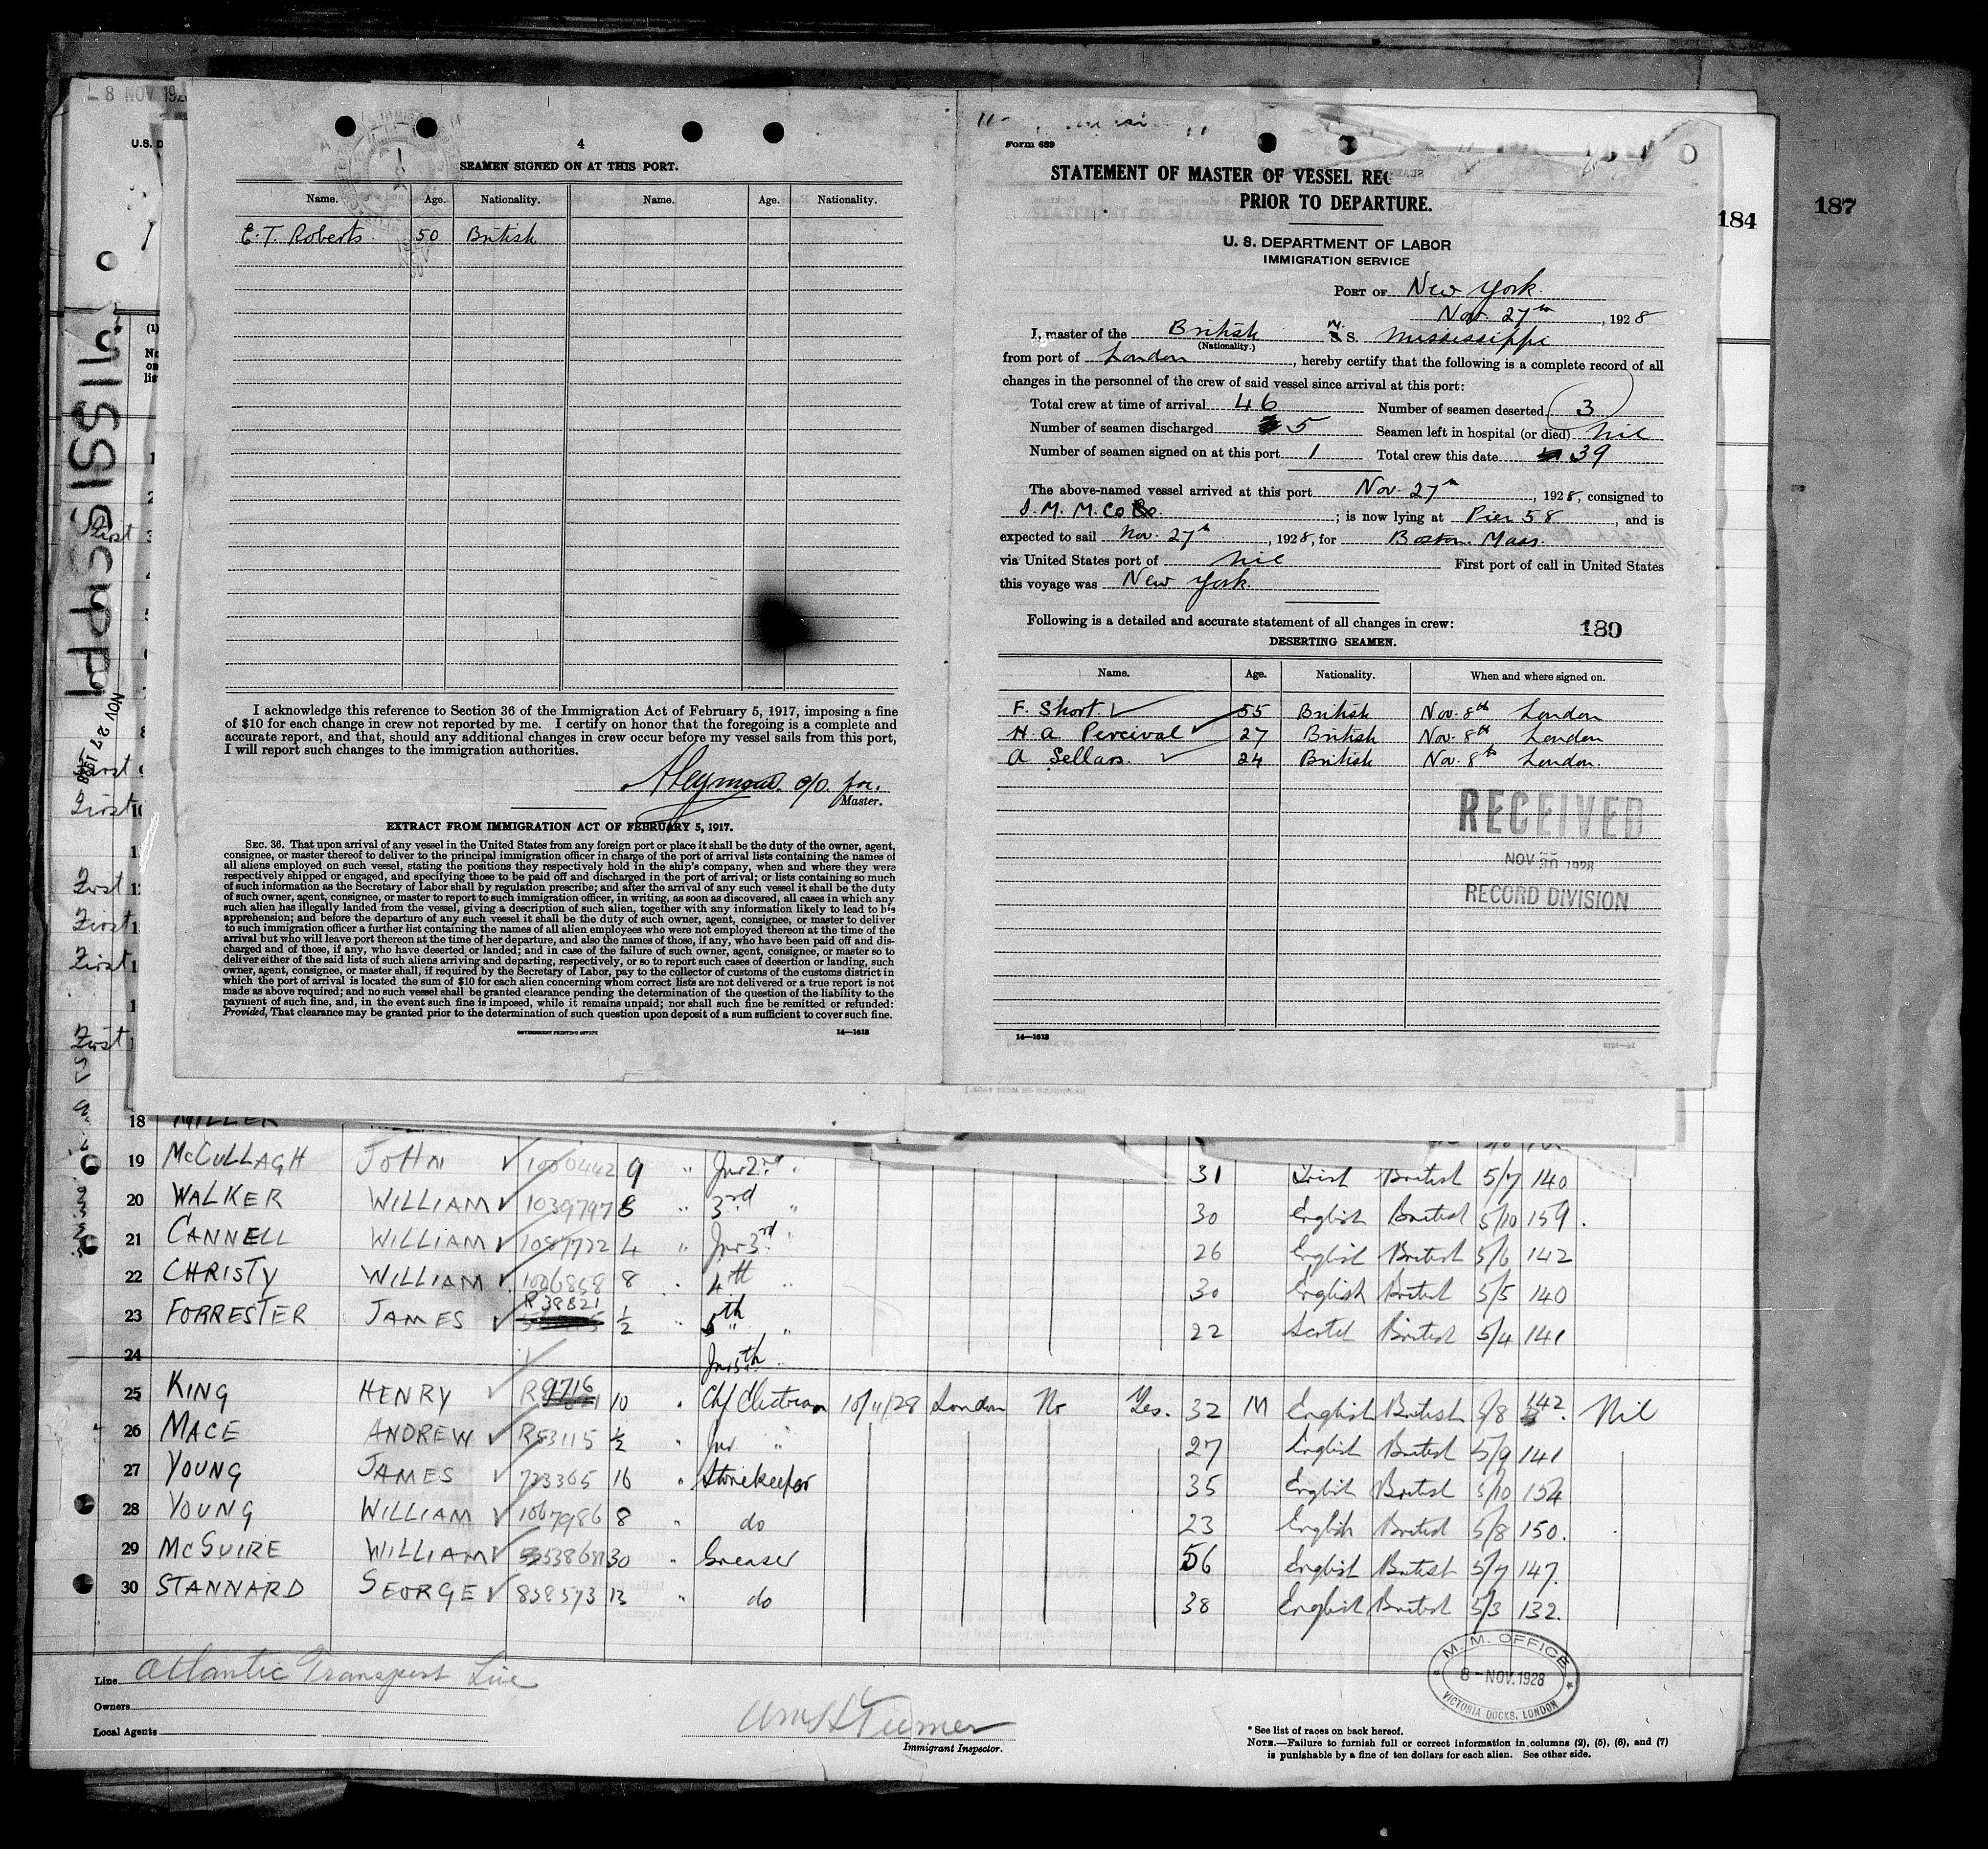 8 NOV 192
U.S. D
4
SEAMEN SIGNED ON AT THIS PORT.
Name. Age. Nationality. Name. Age. Nationality.
E. T. Roberts. 50 British
I acknowledge this reference to Section 36 of the Immigration Act of February 5, 1917, imposing a fine
of $10 for each change in crew not reported by me. I certify on honor that the foregoing is a complete and
accurate report, and that, should any additional changes in crew occur before my vessel sails from this port,
I will report such changes to the immigration authorities.
c/o. for.
Master.
EXTRACT FROM IMMIGRATION ACT OF FEBRUARY 5, 1917.
SEC. 36. That upon arrival of any vessel in the United States from any foreign port or place it shall be the duty of the owner, agent,
consignee, or master thereof to deliver to the principal immigration officer in charge of the port of arrival lists containing the names of
all aliens employed on such vessel, stating the positions they respectively hold in the ship's company, when and where they were
respectively shipped or engaged, and specifying those to be paid off and discharged in the port of arrival; or lists containing so much
of such information as the Secretary of Labor shall by regulation prescribe; and after the arrival of any such vessel it shall be the duty
of such owner, agent, consignee, or master to report to such immigration officer, in writing, as soon as discovered, all cases in which any
such alien has illegally landed from the vessel, giving a description of such alien, together with any information likely to lead to his
apprehension; and before the departure of any such vessel it shall be the duty of such owner, agent, consignee, or master to deliver
to such immigration officer a further list containing the names of all alien employees who were not employed thereon at the time of the
arrival but who will leave port thereon at the time of her departure, and also the names of those, if any, who have been paid off and dis-
charged and of those, if any, who have deserted or landed; and in case of the failure of such owner, agent, consignee, or master so to
deliver either of the said lists of such aliens arriving and departing, respectively, or so to report such cases of desertion or landing, such
owner, agent, consignee, or master shall, if required by the Secretary of Labor, pay to the collector of customs of the customs district in
which the port of arrival is located the sum of $10 for each alien concerning whom correct lists are not delivered or a true report is not
made as above required; and no such vessel shall be granted clearance pending the determination of the question of the liability to the
payment of such fine, and, in the event such fine is imposed, while it remains unpaid; nor shall such fine be remitted or refunded:
Provided, That clearance may be granted prior to the determination of such question upon deposit of a sum sufficient to cover such fine.
GOVERNMENT PRINTING OFFICE 14—1613
Form 689
STATEMENT OF MASTER OF VESSEL REG
PRIOR TO DEPARTURE.
U. S. DEPARTMENT OF LABOR
IMMIGRATION SERVICE
184
187
PORT OF New York.
Nov. 27th, 1928
I, master of the British M. S. Mississippi
(Nationality.)
from port of London, hereby certify that the following is a complete record of all
changes in the personnel of the crew of said vessel since arrival at this port:
Total crew at time of arrival 46 Number of seamen deserted 3
Number of seamen discharged 5 Seamen left in hospital (or died) nil
Number of seamen signed on at this port 1 Total crew this date 39
The above-named vessel arrived at this port Nov. 27th, 1928, consigned to
I. M. M. Co; is now lying at Pier 58, and is
expected to sail Nov. 27th, 1928, for Boston. Mass.
via United States port of nil First port of call in United States
this voyage was New York.
Following is a detailed and accurate statement of all changes in crew: 180
DESERTING SEAMEN.
Name. Age. Nationality. When and where signed on.
F. Short. 55 British Nov. 8th London
H. A Percival 27 British Nov. 8th London
A Sellars. 24 British Nov. 8th London.
RECEIVED
NOV 30 1928
RECORD DIVISION
14—1613
MISSISSIPPI
NOV 27 1928
First
First
First
First
First
First
First
18 MILLER
19 McCULLAGH JOHN 1000442 9 " Jnr 2nd " 31 Irish British 5/7 140
20 WALKER WILLIAM 1039797 8 " 3rd " 30 English British 5/10 159.
21 CANNELL WILLIAM 1081722 4 " Jnr 3rd " 26 English British 5/6 142
22 CHRISTY WILLIAM 1006858 8 " 4th " 30 English British 5/5 140
23 FORRESTER JAMES R 38821 1/2 " 5th " 22 Scotch British 5/4 141
24 Jnr 5th "
25 KING HENRY R 9716 10 " Chf Electrican 10/11/28 London No Yes. 32 M English British 5/8 142. Nil
26 MACE ANDREW R53115 1/2 " Jnr " 27 English British 5/9 141
27 YOUNG JAMES 723365 16 " Storekeeper 35 English British 5/10 154
28 YOUNG WILLIAM 1067986 8 " do 23 English British 5/8 150.
29 McGUIRE WILLIAM 30 " Greaser 56 English British 5/7 147.
30 STANNARD GEORGE 838573 13 " do 38 English British 5/3 132.
Line Atlantic Transport Line
Owners
Local Agents
Wm H Turner
Immigrant Inspector.
M. M. OFFICE
8 - NOV. 1928
VICTORIA DOCKS, LONDON
* See list of races on back hereof.
NOTE.—Failure to furnish full or correct information in columns (2), (5), (6), and (7)
is punishable by a fine of ten dollars for each alien. See other side.